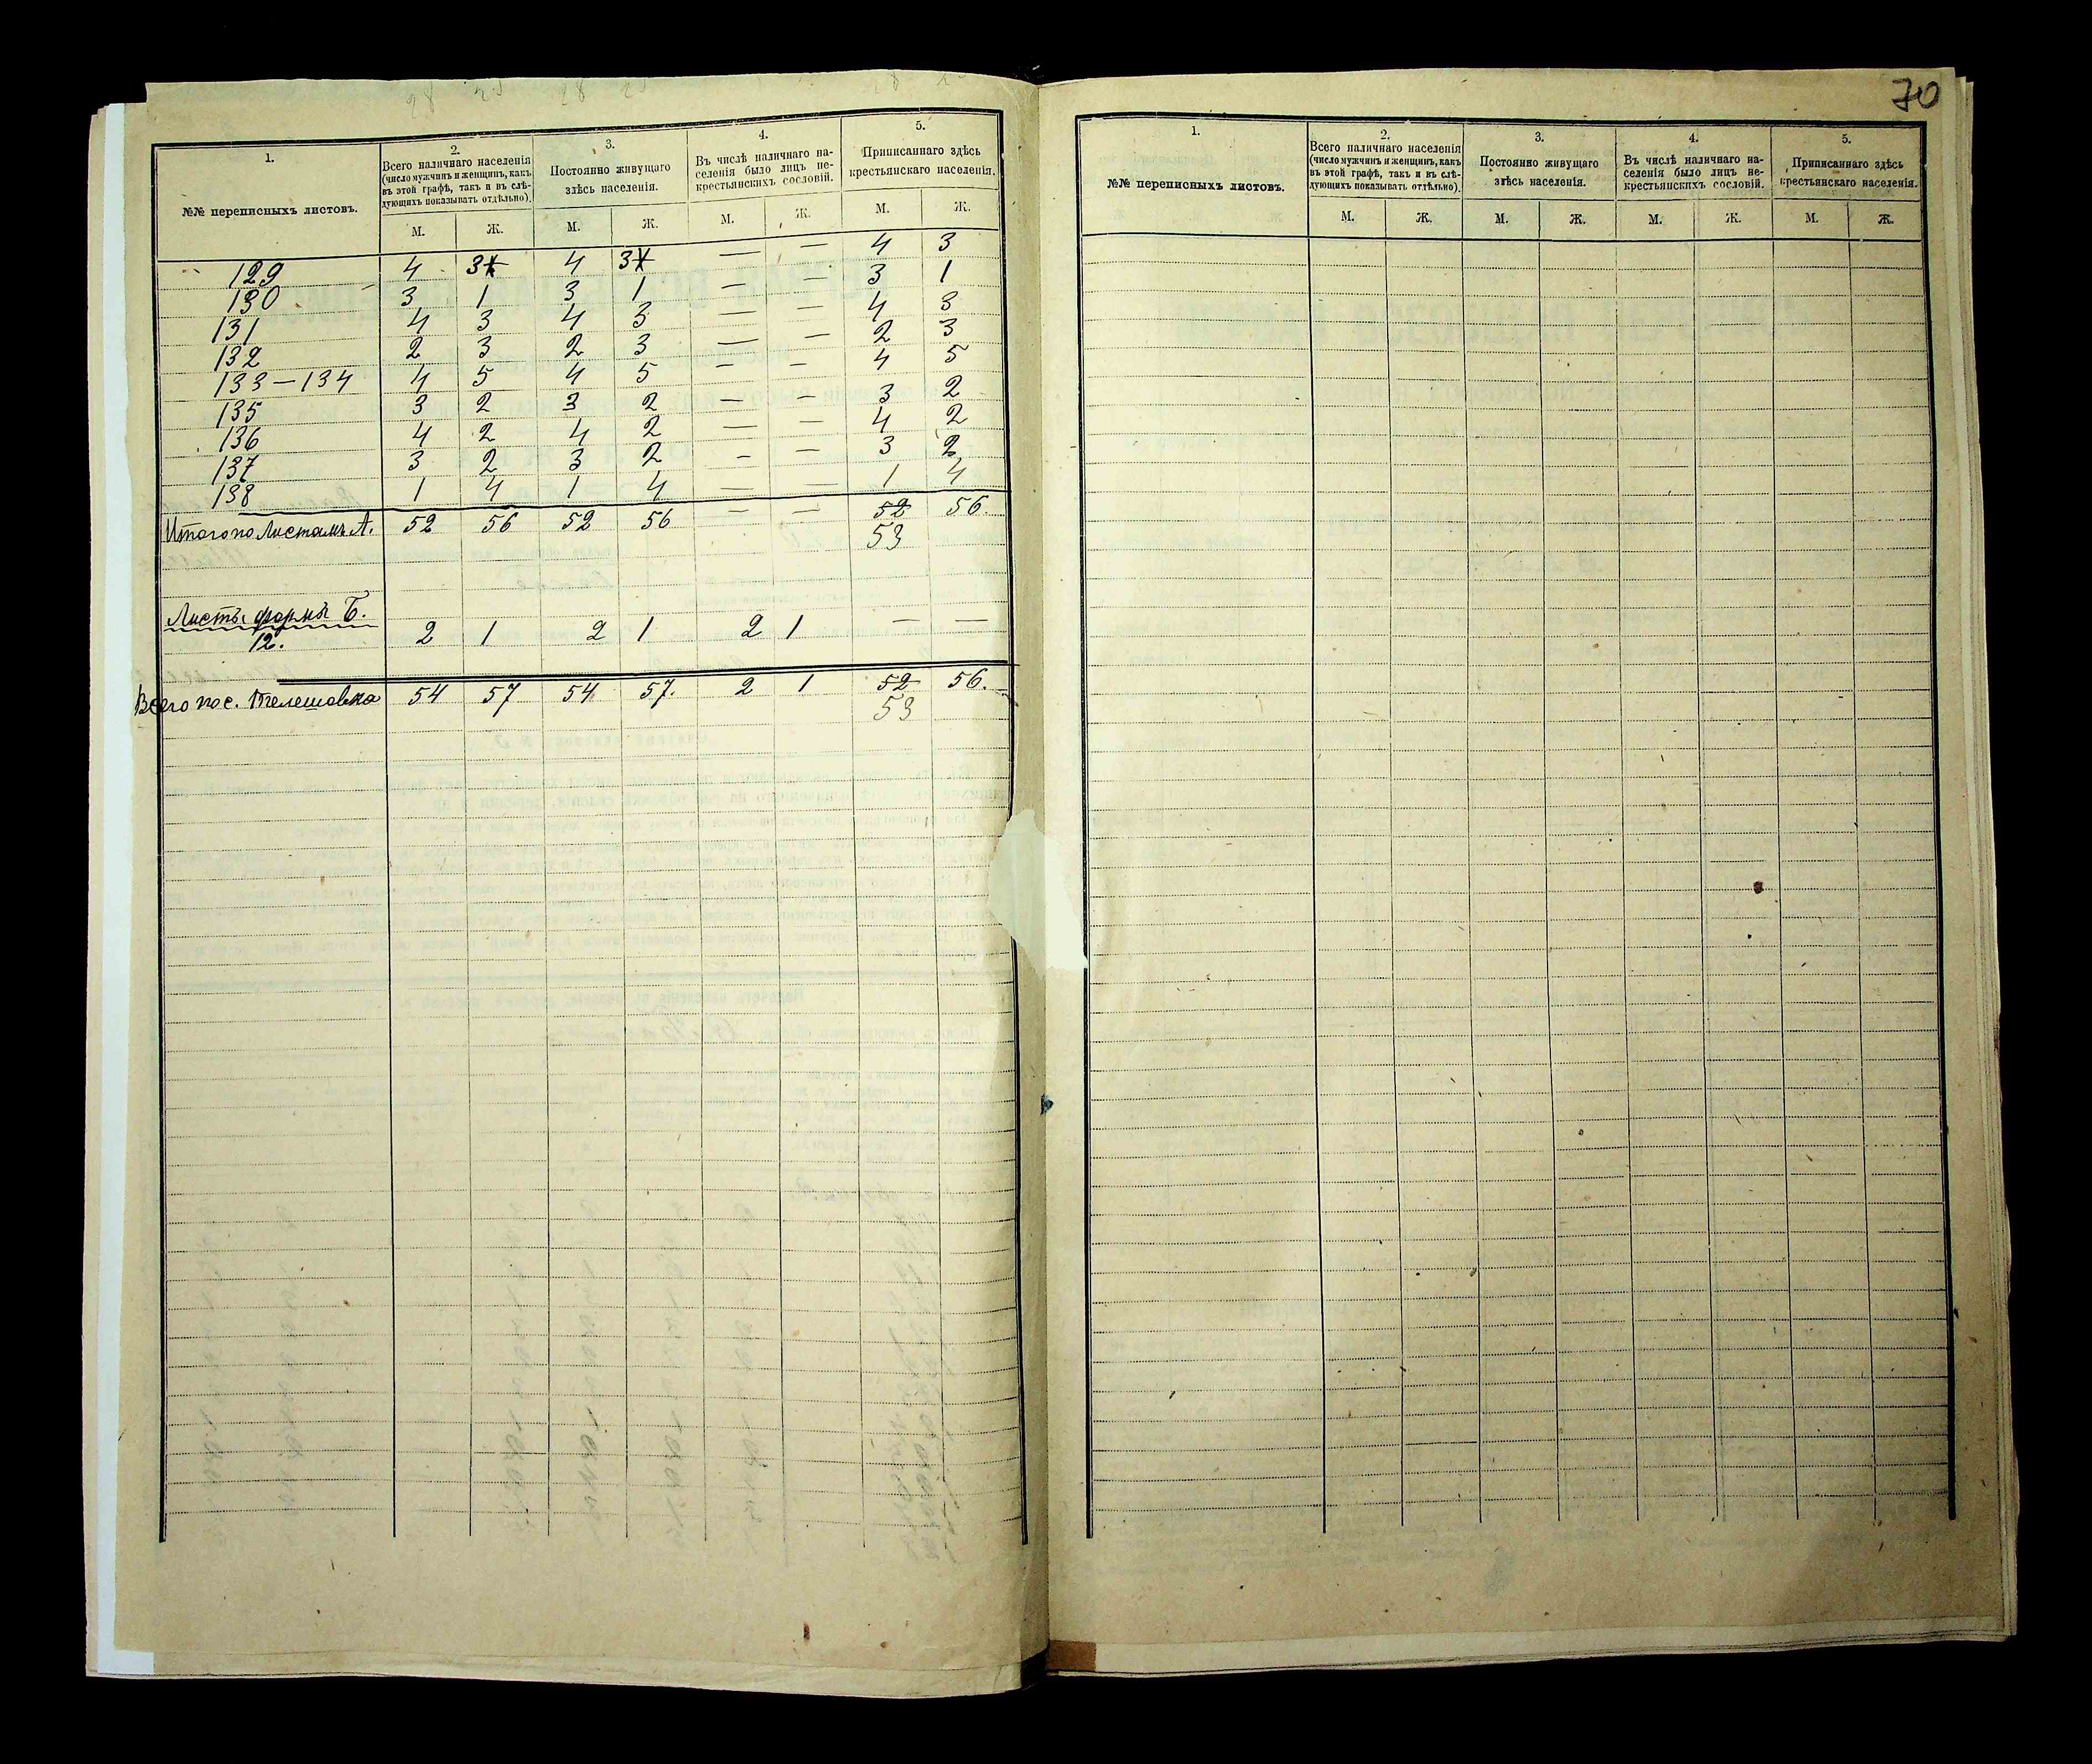 70
1. 2. 3. 4. 5.
№№ переписныхъ листовъ.
Всего наличнаго населенія
(число мужчинъ и женщинъ, какъ
въ этой графѣ, такъ и въ слѣ-
дующихъ показывать отдѣльно).
Постоянно живущаго
здѣсь населенія.
Въ числѣ наличнаго на-
селенія было лицъ не-
крестьянскихъ сословій.
Приписаннаго здѣсь
крестьянскаго населенія.
М. Ж. М. Ж. М. Ж. М. Ж.
129 4 3 4 3 — — 4 3
130 3 1 3 1 — — 3 1
131 4 3 4 3 — — 4 3
132 2 3 2 3 — — 2 3
133—134 4 5 4 5 — — 4 5
135 3 2 3 2 — — 3 2
136 4 2 4 2 — — 4 2
137 3 2 3 2 — — 3 2
138 1 4 1 4 — — 1 4
Итого по Листамъ А. 52 56 52 56 — — 52 56.
53
Листы формы Б.
12. 2 1 2 1 2 1 — —
Всего по с. Телешовка 54 57 54 57. 2 1 52 56.
53
1. 2. 3. 4. 5.
№№ переписныхъ листовъ.
Всего наличнаго населенія
(число мужчинъ и женщинъ, какъ
въ этой графѣ, такъ и въ слѣ-
дующихъ показывать отдѣльно).
Постоянно живущаго
здѣсь населенія.
Въ числѣ наличнаго на-
селенія было лицъ не-
крестьянскихъ сословій.
Приписаннаго здѣсь
крестьянскаго населенія.
М. Ж. М. Ж. М. Ж. М. Ж.